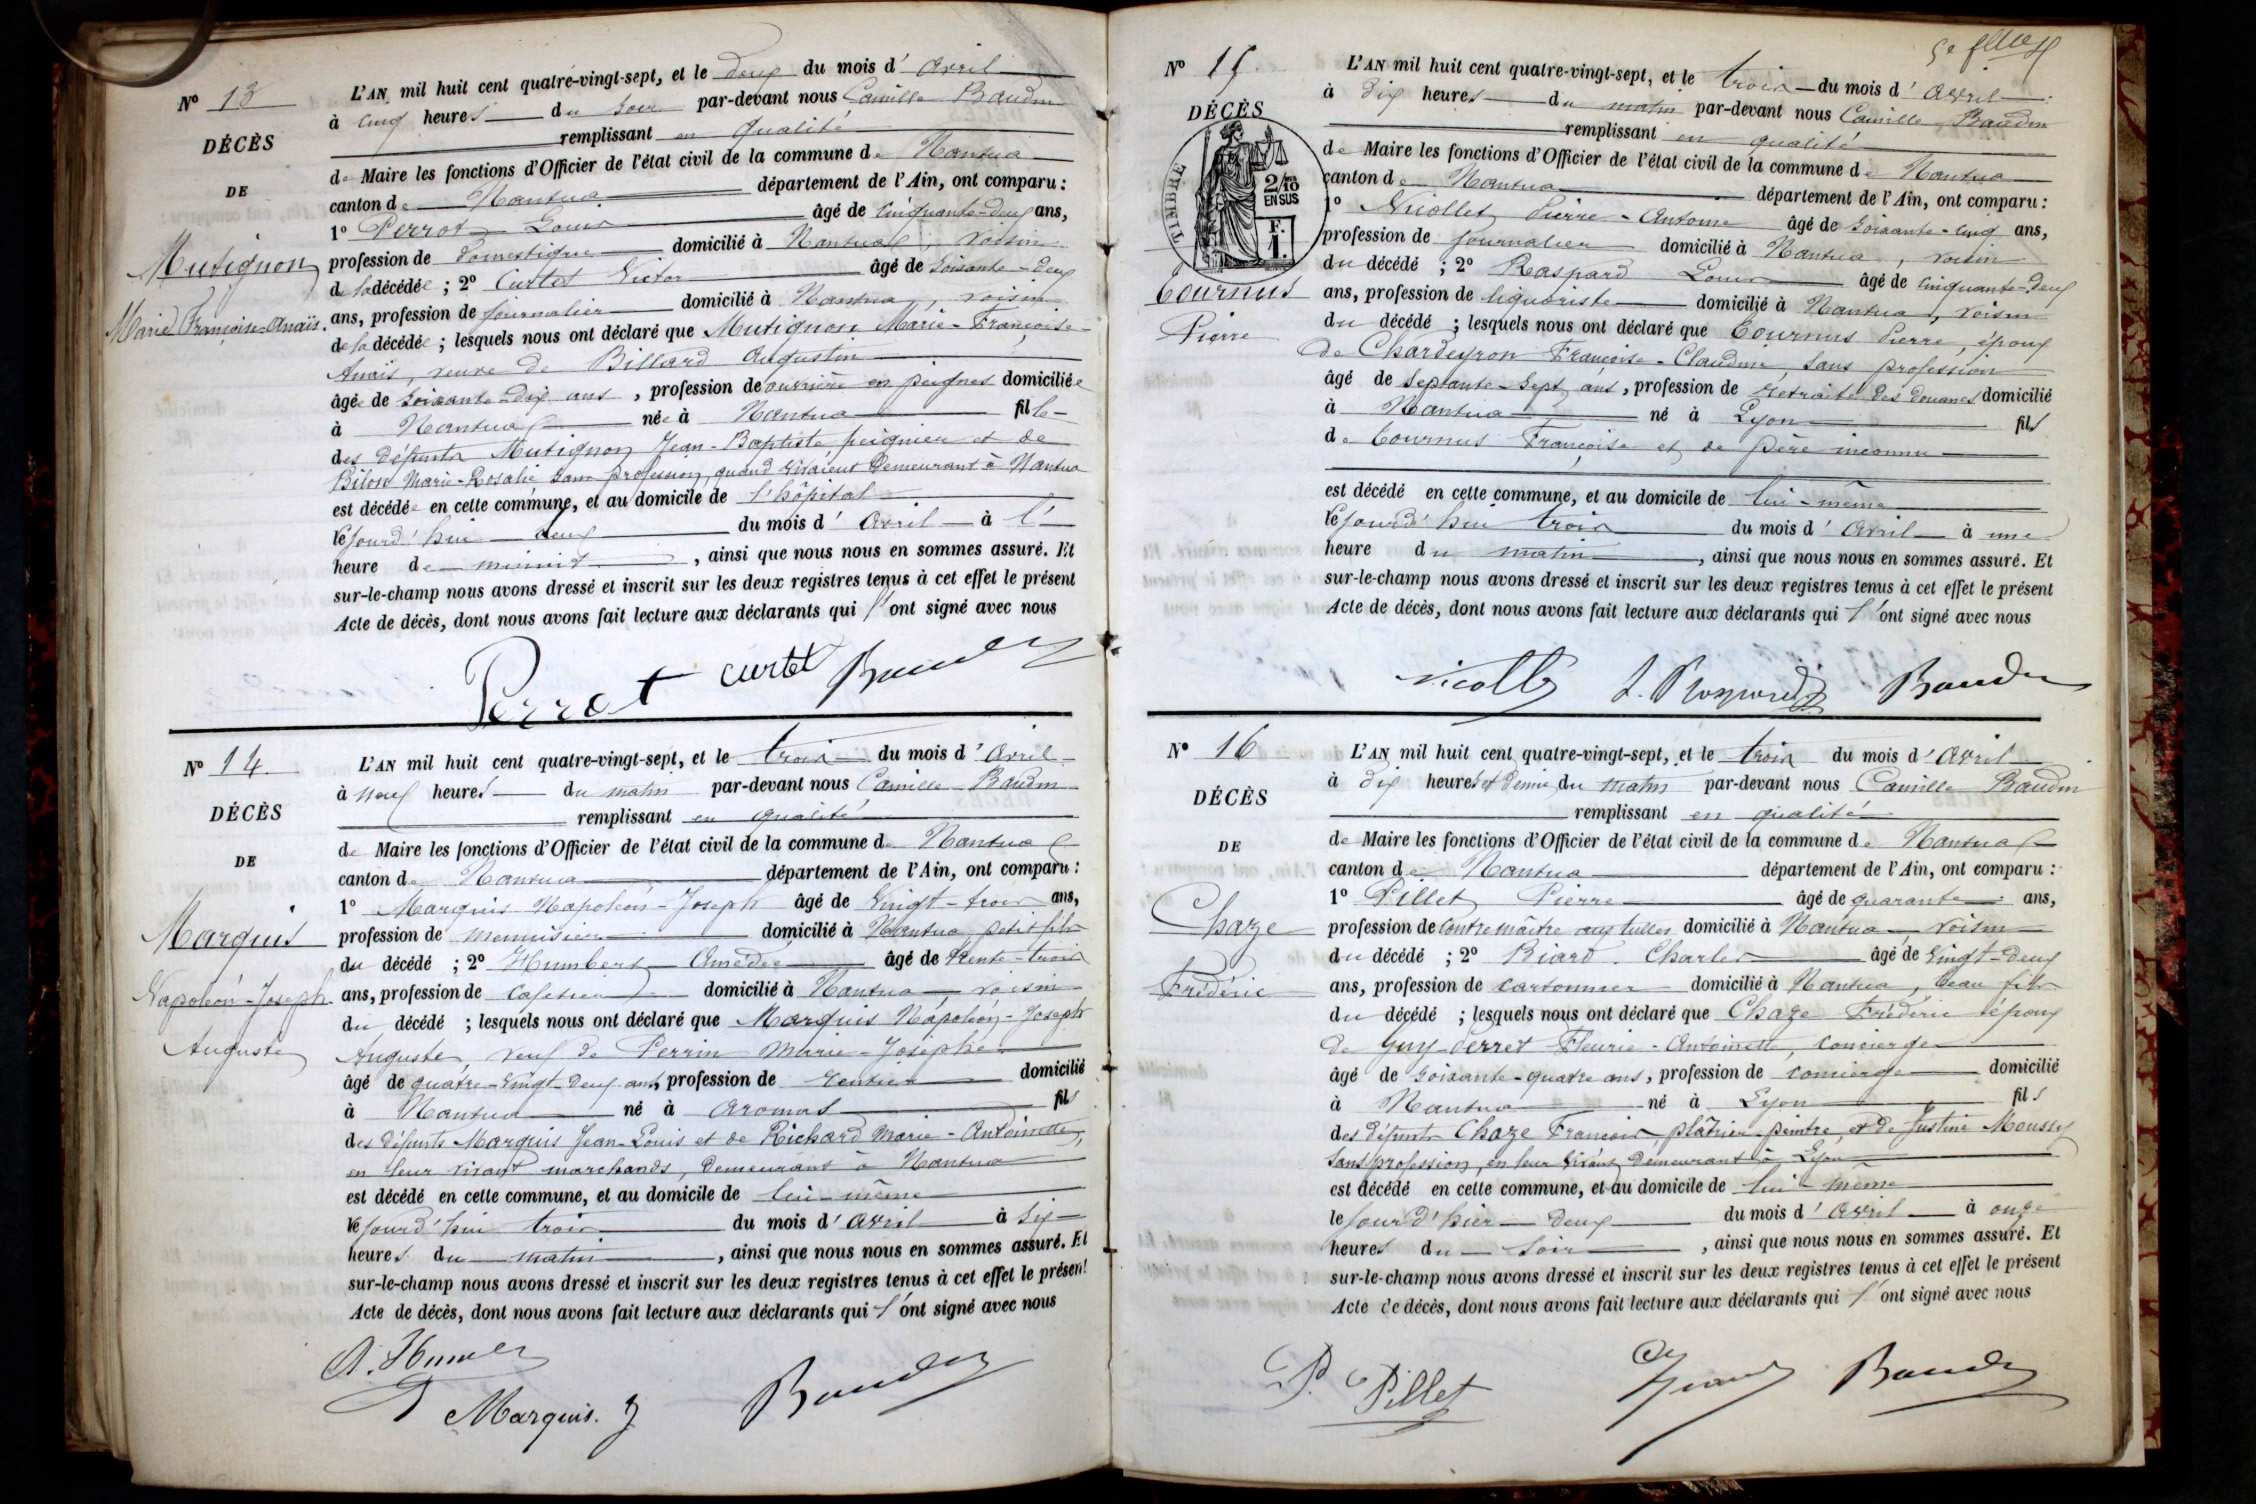 N° 13
DÉCÈS
DE
Mutignon
Marie Françoise-Anaïs.
L'AN mil huit cent quatre-vingt-sept, et le deux du mois d'avril
à cinq heures du soir par-devant nous Camille Baudin
remplissant en qualité
de Maire les fonctions d'Officier de l'état civil de la commune de Nantua
canton de Nantua département de l'Ain, ont comparu :
1° Perrot Louis âgé de cinquante-deux ans,
profession de domestique domicilié à Nantua, voisin
de la décédée ; 2° Curtet Victor âgé de soixante-deux
ans, profession de journalier domicilié à Nantua, voisin
de la décédée ; lesquels nous ont déclaré que Mutignon Marie-Françoise-
Anaïs, veuve de Billard Augustin
âgée de soixante-dix ans, profession de ouvrière en peignes domiciliée
à Nantua née à Nantua fille
des défunts Mutignon Jean-Baptiste, peignier et de
Bilon Marie-Rosalie sans profession, quand vivaient demeurant à Nantua
est décédée en cette commune, et au domicile de l'hôpital
le jourd'hui deux du mois d'avril à l'
heure de minuit, ainsi que nous nous en sommes assuré. Et
sur-le-champ nous avons dressé et inscrit sur les deux registres tenus à cet effet le présent
Acte de décès, dont nous avons fait lecture aux déclarants qui l'ont signé avec nous
Perrot curtet Baudin
N° 14
DÉCÈS
DE
Marquis
Napoléon-Joseph
Auguste
L'AN mil huit cent quatre-vingt-sept, et le trois du mois d'avril
à neuf heures du matin par-devant nous Camille Baudin
remplissant en qualité
de Maire les fonctions d'Officier de l'état civil de la commune de Nantua
canton de Nantua département de l'Ain, ont comparu :
1° Marquis Napoléon-Joseph âgé de vingt-trois ans,
profession de menuisier domicilié à Nantua petit fils
du décédé ; 2° Humbert Amédée âgé de trente-trois
ans, profession de cafetier domicilié à Nantua voisin
du décédé ; lesquels nous ont déclaré que Marquis Napoléon-Joseph
Auguste, veuf de Perrin Marie-Josephe
âgé de quatre-vingt-deux ans, profession de rentier domicilié
à Nantua né à Aromas fils
des défunts Marquis Jean-Louis et de Richard Marie-Antoinette,
en leur vivant marchands, demeurant à Nantua
est décédé en cette commune, et au domicile de lui-même
le jourd'hui trois du mois d'avril à six
heures du matin, ainsi que nous nous en sommes assuré. Et
sur-le-champ nous avons dressé et inscrit sur les deux registres tenus à cet effet le présent
Acte de décès, dont nous avons fait lecture aux déclarants qui l'ont signé avec nous
A. Humber
Marquis. J Baudin
5e
N° 15
DÉCÈS
TIMBRE
2/10
EN SUS
F.
1.
Tournus
Pierre
L'AN mil huit cent quatre-vingt-sept, et le trois du mois d'avril
à dix heures du matin par-devant nous Camille Baudin
remplissant en qualité
de Maire les fonctions d'Officier de l'état civil de la commune de Nantua
canton de Nantua département de l'Ain, ont comparu :
1° Nicollet Pierre-Antoine âgé de soixante-cinq ans,
profession de journalier domicilié à Nantua, voisin
du décédé ; 2° Raspard Louis âgé de cinquante-deux
ans, profession de liquoriste domicilié à Nantua, voisin
du décédé ; lesquels nous ont déclaré que Tournus Pierre, époux
de Chardeyron Françoise-Claudine, sans profession
âgé de septante-sept ans, profession de retraité des douanes domicilié
à Nantua né à Lyon fils
de Tournus Françoise et de père inconnu
est décédé en cette commune, et au domicile de lui-même
le jourd'hui trois du mois d'avril à une
heure du matin, ainsi que nous nous en sommes assuré. Et
sur-le-champ nous avons dressé et inscrit sur les deux registres tenus à cet effet le présent
Acte de décès, dont nous avons fait lecture aux déclarants qui l'ont signé avec nous
Nicollet L. Raspard Baudin
N° 16
DÉCÈS
DE
Chaze
Frédéric
L'AN mil huit cent quatre-vingt-sept, et le trois du mois d'avril
à dix heures et demie du matin par-devant nous Camille Baudin
remplissant en qualité
de Maire les fonctions d'Officier de l'état civil de la commune de Nantua
canton de Nantua département de l'Ain, ont comparu :
1° Pillet Pierre âgé de quarante ans,
profession de contremaître aux tulles domicilié à Nantua voisin
du décédé ; 2° Biard Charles âgé de vingt-deux
ans, profession de cartonnier domicilié à Nantua, beau fils
du décédé ; lesquels nous ont déclaré que Chaze Frédéric époux
de Guy-Perret Fleurie-Antoinette, concierge
âgé de soixante-quatre ans, profession de concierge domicilié
à Nantua né à Lyon fils
des défunts Chaze François, plâtrier-peintre, et de Justine Moussy
sans profession, en leur vivant demeurant à Lyon
est décédé en cette commune, et au domicile de lui-même
le jour d'hier deux du mois d'avril à onze
heures du soir, ainsi que nous nous en sommes assuré. Et
sur-le-champ nous avons dressé et inscrit sur les deux registres tenus à cet effet le présent
Acte de décès, dont nous avons fait lecture aux déclarants qui l'ont signé avec nous
P. Pillet Baudin